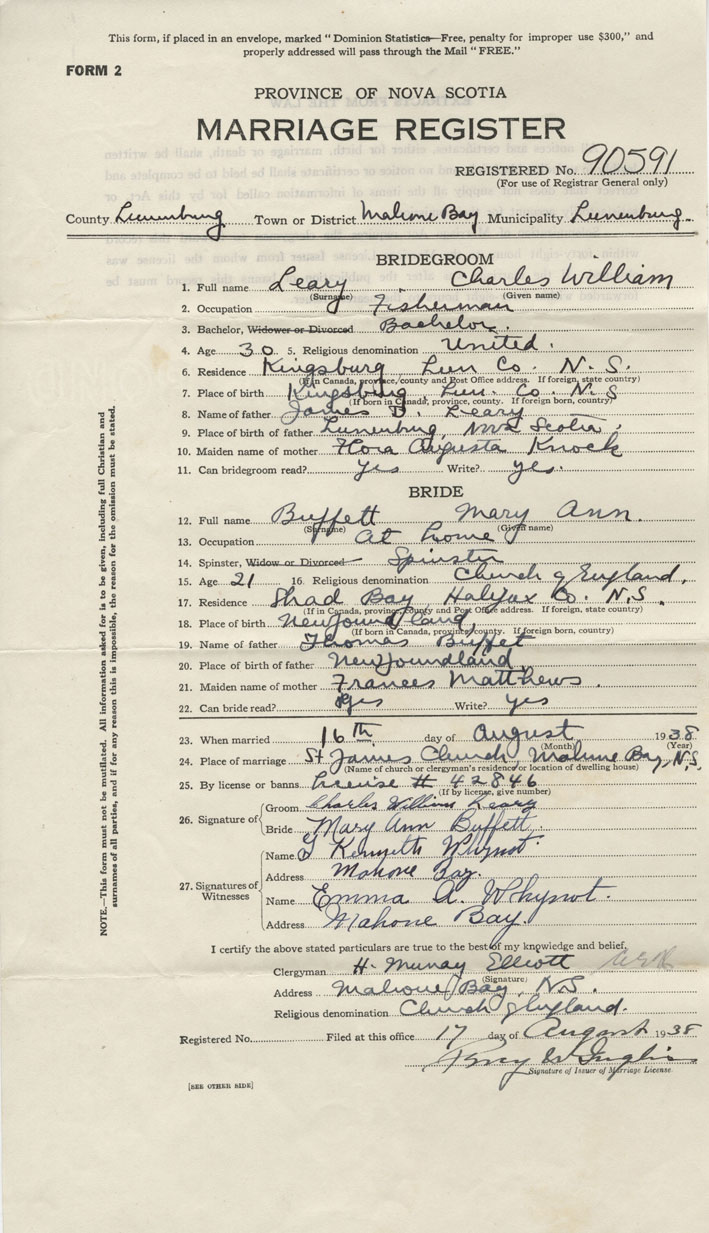 This form, if placed in an envelope, marked "Dominion Statistics—Free, penalty for improper use $300," and
properly addressed will pass through the Mail "FREE."
FORM 2
PROVINCE OF NOVA SCOTIA
MARRIAGE REGISTER
REGISTERED No. 90591
(For use of Registrar General only)
County Lunenburg Town or District Mahone Bay Municipality Lunenburg
BRIDEGROOM
1. Full name Leary Charles William
(Surname) (Given name)
2. Occupation Fisherman
3. Bachelor, Widower or Divorced Bachelor.
4. Age 30 5. Religious denomination United.
6. Residence Kingsburg Lun Co. N. S.
(If in Canada, province, county and Post Office address. If foreign, state country)
7. Place of birth Kingsburg, Lun. Co. N. S
(If born in Canada, province, county. If foreign born, country)
8. Name of father James D. Leary
9. Place of birth of father Lunenburg, Nova Scotia.
10. Maiden name of mother Flora Augusta Knock
11. Can bridegroom read? yes Write? yes.
BRIDE
12. Full name Buffett Mary Ann.
(Surname) (Given name)
13. Occupation At home
14. Spinster, Widow or Divorced Spinster
15. Age 21 16. Religious denomination Church of England.
17. Residence Shad Bay, Halifax Co. N.S.
(If in Canada, province, county and Post Office address. If foreign, state country)
18. Place of birth Newfoundland,
(If born in Canada, province, county. If foreign born, country)
19. Name of father Thomas Buffet
20. Place of birth of father Newfoundland
21. Maiden name of mother Frances Matthews.
22. Can bride read? yes Write? yes
23. When married 16th day of August 1938
(Month) (Year)
24. Place of marriage St James Church, Mahone Bay, N.S.
(Name of church or clergyman's residence or location of dwelling house)
25. By license or banns License # 42846
(If by license, give number)
26. Signature of
Groom Charles William Leary
Bride Mary Ann Buffett.
27. Signatures of Witnesses
Name Kenneth Whynot.
Address Mahone Bay.
Name Emma A. Whynot.
Address Mahone Bay.
I certify the above stated particulars are true to the best of my knowledge and belief.
Clergyman H. Murray Elliott
(Signature)
Address Mahone Bay, N.S.
Religious denomination Church of England.
Registered No. Filed at this office 17 day of August 1938
Signature of Issuer of Marriage License.
[SEE OTHER SIDE]
NOTE.—This form must not be mutilated. All information asked for is to be given, including full Christian and
surnames of all parties, and if for any reason this is impossible, the reason for the omission must be stated.